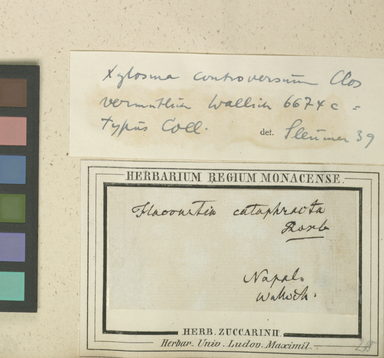 Xylosma controversum Clos
vermutlich Wallich 6674 c =
Typus Coll.
det. Sleumer 39
HERBARIUM REGIUM MONACENSE.
Flacourtia cataphracta
Roxb
Napal.
Wallich.
HERB. ZUCCARINII
Herbar. Univ. Ludov. Maximil.